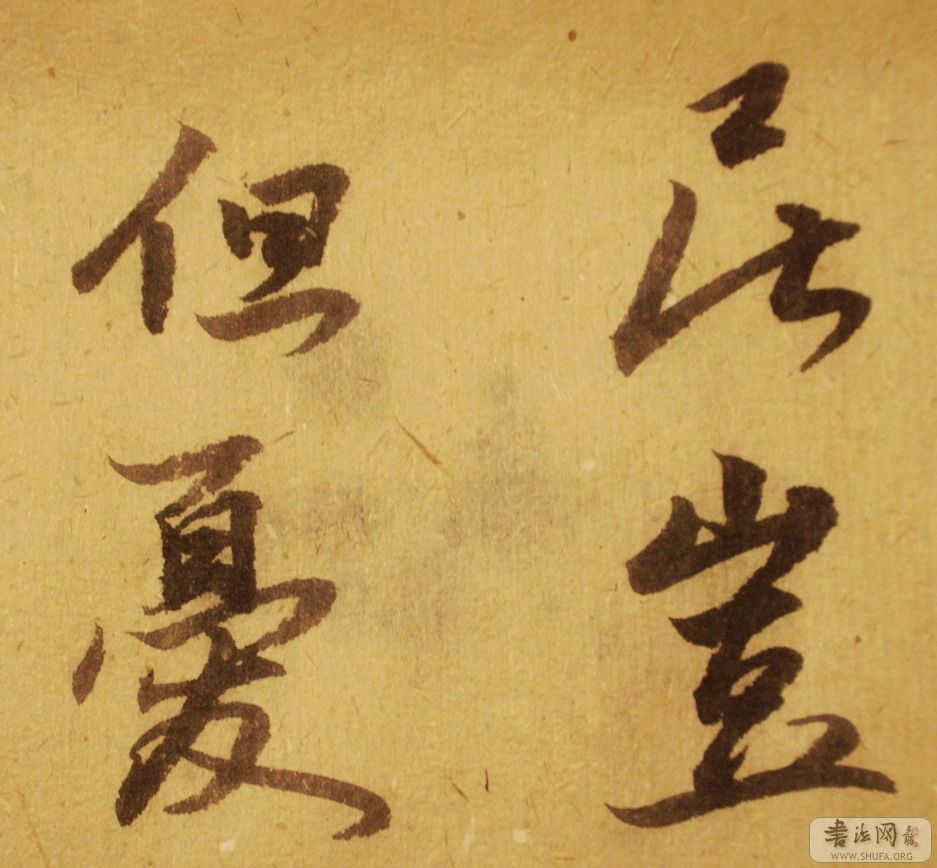 豈
但憂
書法网
WWW.SHUFA.ORG